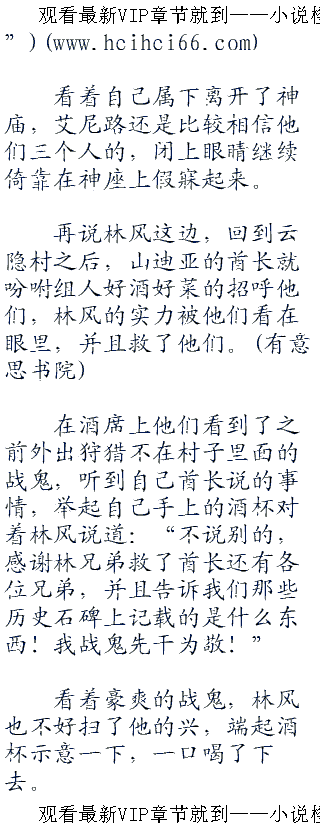 观看最新VIP章节就到——小说
”)(www.hcihci66.com)
看着自己属下离开了神
庙，艾尼路还是比较相信他
们三个人的，闭上眼睛继续
倚靠在神座上假寐起来。
再说林风这边，回到云
隐村之后，山迪亚的酋长就
吩咐组人好酒好菜的招呼他
们，林风的实力被他们看在
眼里，并且救了他们。(有意
思书院)
在酒席上他们看到了之
前外出狩猎不在村子里面的
战鬼，听到自己酋长说的事
情，举起自己手上的酒杯对
着林风说道：“不说别的，
感谢林兄弟救了酋长还有各
位兄弟，并且告诉我们那些
历史石碑上记载的是什么东
西！我战鬼先干为敬！”
看着豪爽的战鬼，林风
也不好扫了他的兴，端起酒
杯示意一下，一口喝了下
去。
观看最新VIP章节就到——小说